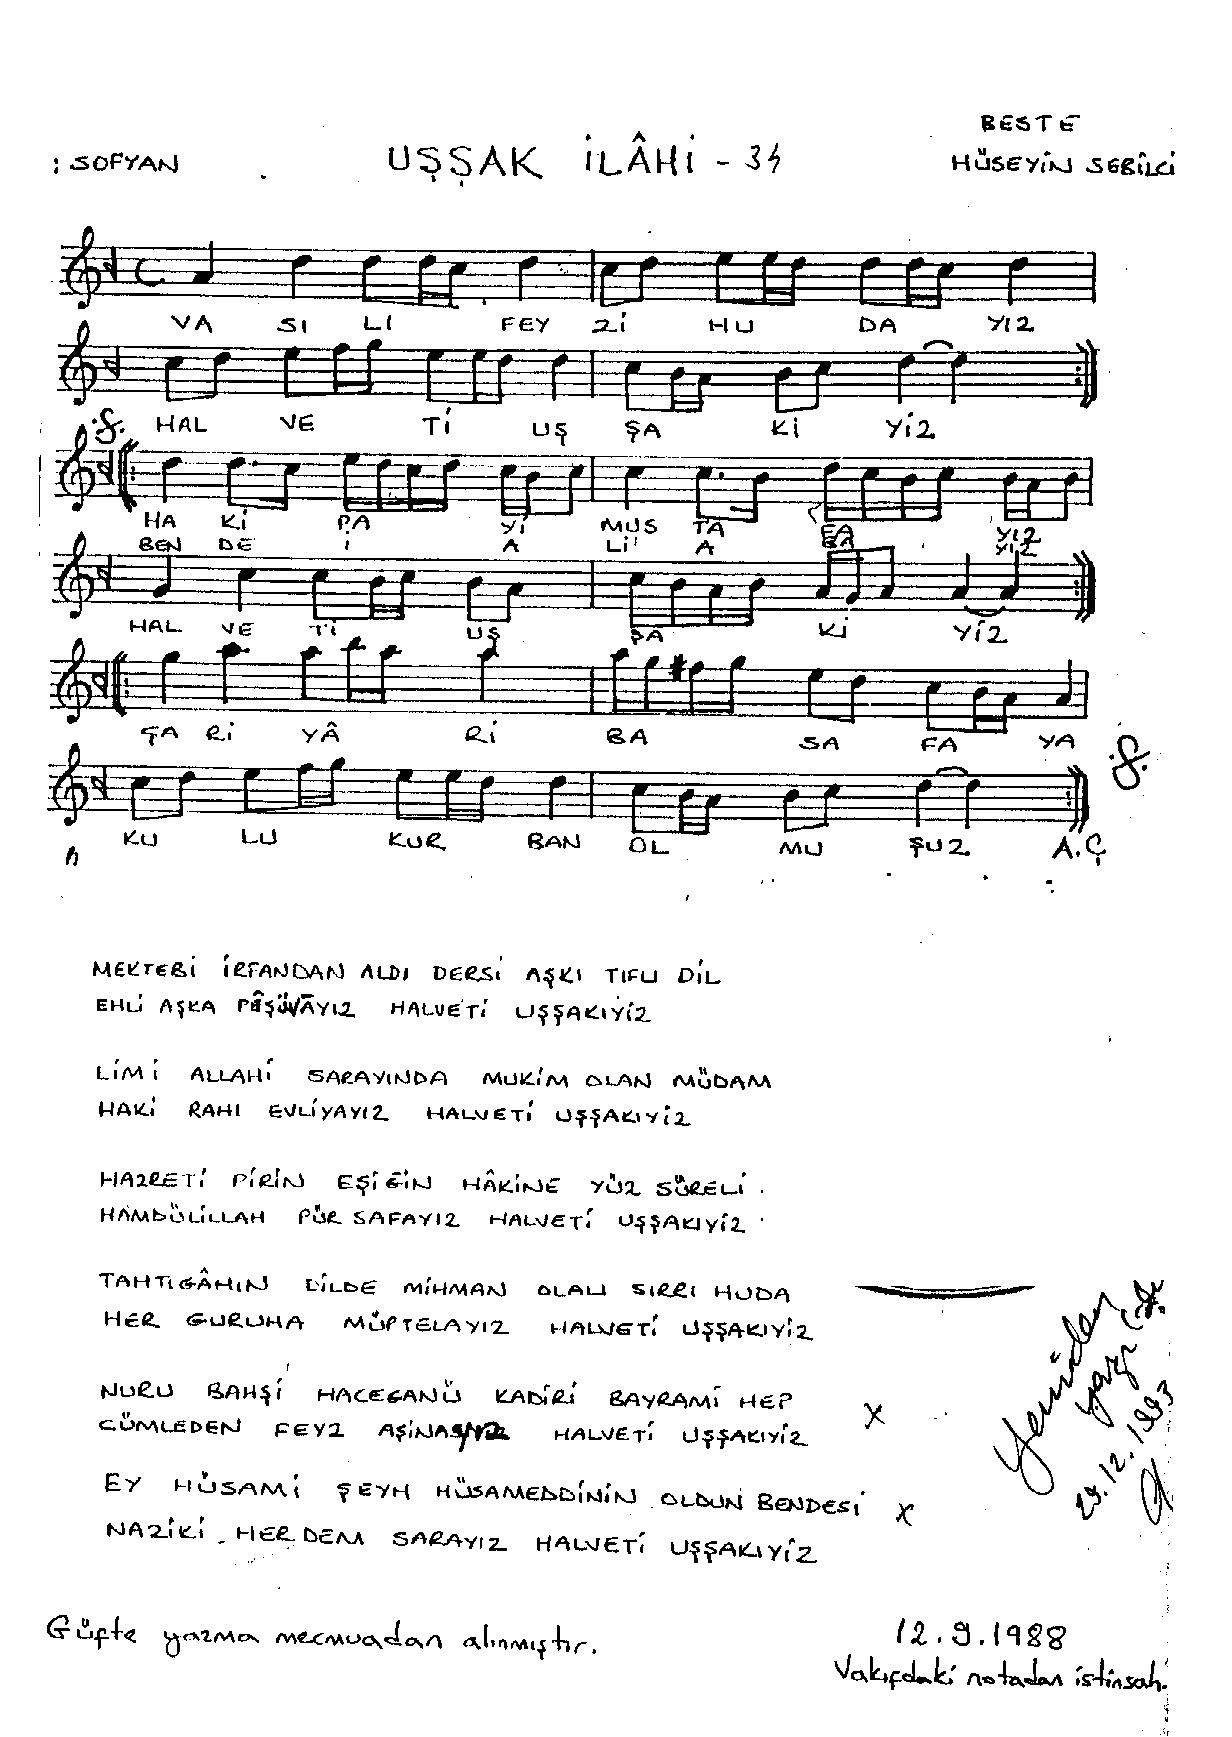 BESTE
: SOFYAN UŞŞAK İLÂHİ - 34 HÜSEYİN SEBİLCİ
VA SI LI FEY ZI HU DA YIZ
HAL VE Tİ UŞ ŞA Kİ YİZ
HA Kİ PA Yİ MUS TA FA YIZ
BEN DE İ A Lİ A BA YIZ
HAL VE Tİ UŞ ŞA Kİ YİZ
ÇA Rİ YÂ Rİ BA SA FA YA
KU LU KUR BAN OL MU ŞUZ A.Ç
MEKTEBİ İRFANDAN ALDI DERSİ AŞKI TIFLI DİL
EHLİ AŞKA PÊŞÜVÂYIZ HALVETİ UŞŞAKIYİZ
LİMİ ALLAHİ SARAYINDA MUKİM OLAN MÜDAM
HAKİ RAHI EVLİYAYIZ HALVETİ UŞŞAKIYİZ
HAZRETİ PİRİN EŞİĞİN HÂKİNE YÜZ SÜRELİ
HAMDÜLİLLAH PÜR SAFAYIZ HALVETİ UŞŞAKIYİZ
TAHTIGÂHIN DİLDE MİHMAN OLALI SIRRI HUDA
HER GURUHA MÜPTELAYIZ HALVETİ UŞŞAKIYİZ
NURU BAHŞİ HACEGANÜ KADİRİ BAYRAMİ HEP x
CÜMLEDEN FEYZ AŞİNAYIZ HALVETİ UŞŞAKIYİZ
EY HÜSAMİ ŞEYH HÜSAMEDDİNİN OLDUN BENDESİ x
NAZİKİ HERDEM SARAYIZ HALVETİ UŞŞAKIYİZ
Yeniden
29.12.1993
Güfte yazma mecmuadan alınmıştır.
12.9.1988
Vakıfdaki notadan istinsah.